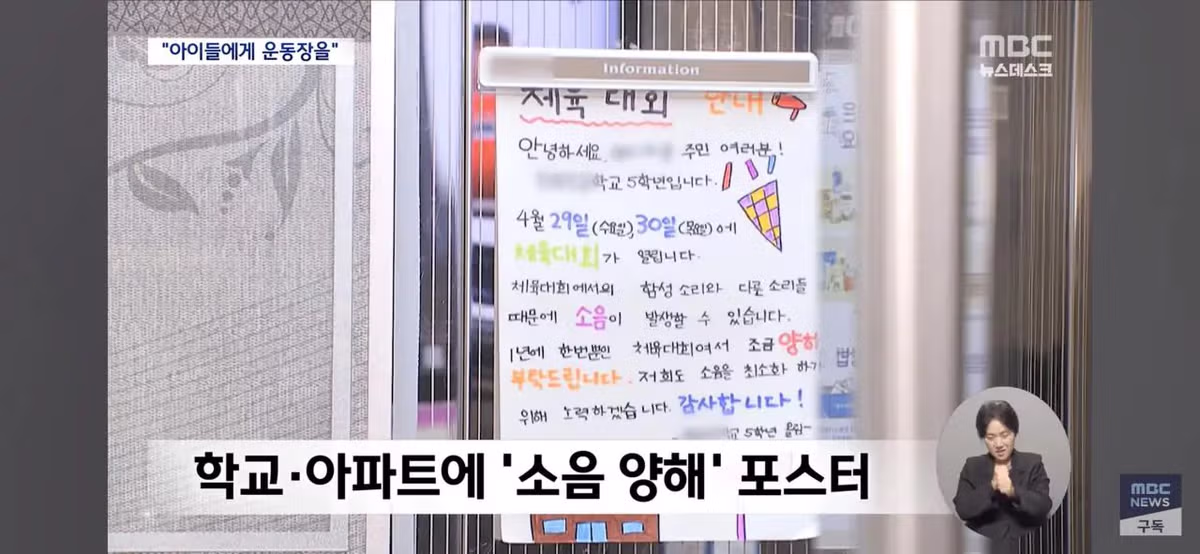 "아이들에게 운동장을"
MBC
뉴스데스크
Information
체육대회 안내
안녕하세요. 주민 여러분!
학교 5학년입니다.
4월 29일(수요일), 30일(목요일)에
체육대회가 열립니다.
체육대회에서의 함성 소리와 다른 소리들
때문에 소음이 발생할 수 있습니다.
1년에 한번뿐인 체육대회여서 조금 양해
부탁드립니다. 저희도 소음을 최소화 하기
위해 노력하겠습니다. 감사합니다!
교 5학년 올림-
학교·아파트에 '소음 양해' 포스터
MBC
NEWS
구독